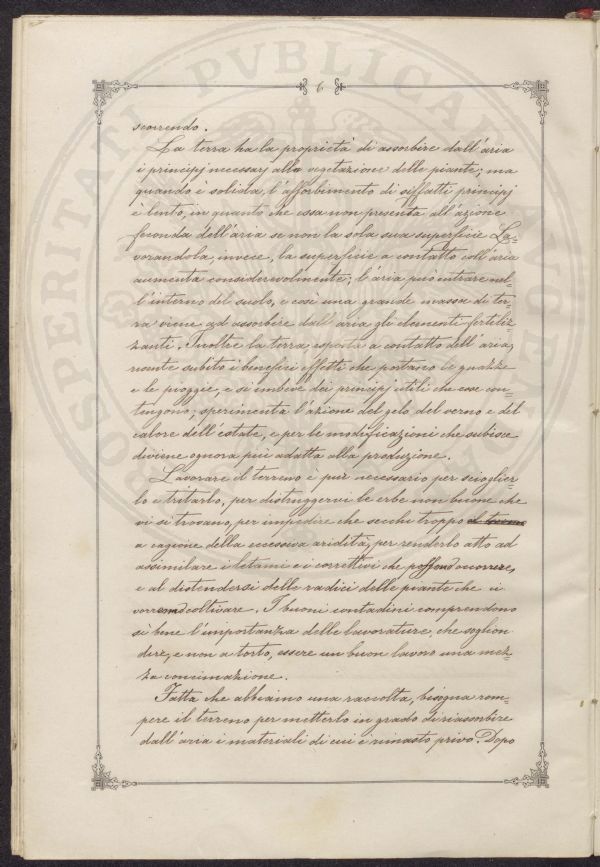 6
scorrendo.
La terra ha la proprietà di assorbire dall'aria
i principj necessarj alla vegetazione delle piante; ma
quando è solida, l'assorbimento di siffatti principj
è lento, in quanto che essa non presenta all'azione
feconda dell'aria se non la sola sua superficie. La-
vorandola, invece, la superficie a contatto coll'aria
aumenta considerevolmente; l'aria può entrare nel-
l'interno del suolo, e così una grande massa di ter-
ra viene ad assorbire dall'aria gli elementi fertiliz-
zanti. Inoltre la terra, esposta a contatto dell'aria,
risente subito i benefici effetti che portano le guazze
e le pioggie, e si imbeve dei principj utili che esse con-
tengono; sperimenta l'azione del gelo, del verno e del
calore dell'estate, e per le modificazioni che subisce
diviene ognora più adatta alla produzione.
Lavorare il terreno è pur necessario per scioglier-
lo e tritarlo, per distruggervi le erbe non buone che
vi si trovano, per impedire che secchi troppo
a cagione della eccessiva aridità, per renderlo atto ad
assimilare i letami e i correttivi che possono occorrere,
e al distendersi delle radici delle piante che vi
vorremo coltivare. I buoni contadini comprendono
sì bene l'importanza delle lavorature, che soglion
dire, e non a torto, essere un buon lavoro una mez-
za concimazione.
Fatta che abbiamo una raccolta, bisogna rom-
pere il terreno per metterlo in grado di riassorbire
dall'aria i materiali di cui è rimasto privo. Dopo
PROSPERITATI PVBLICAE AVGENDAE